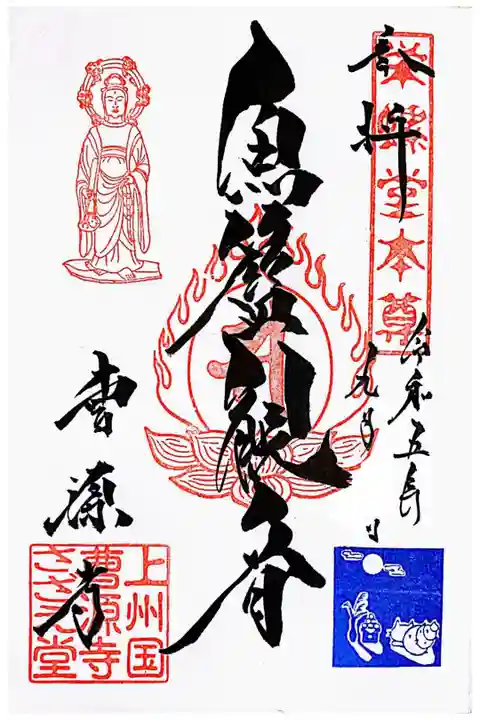 奉拝
栄螺堂本尊
令和五年
九月 日
魚籃観音
曹源寺
上州国
曹源寺
さざえ堂